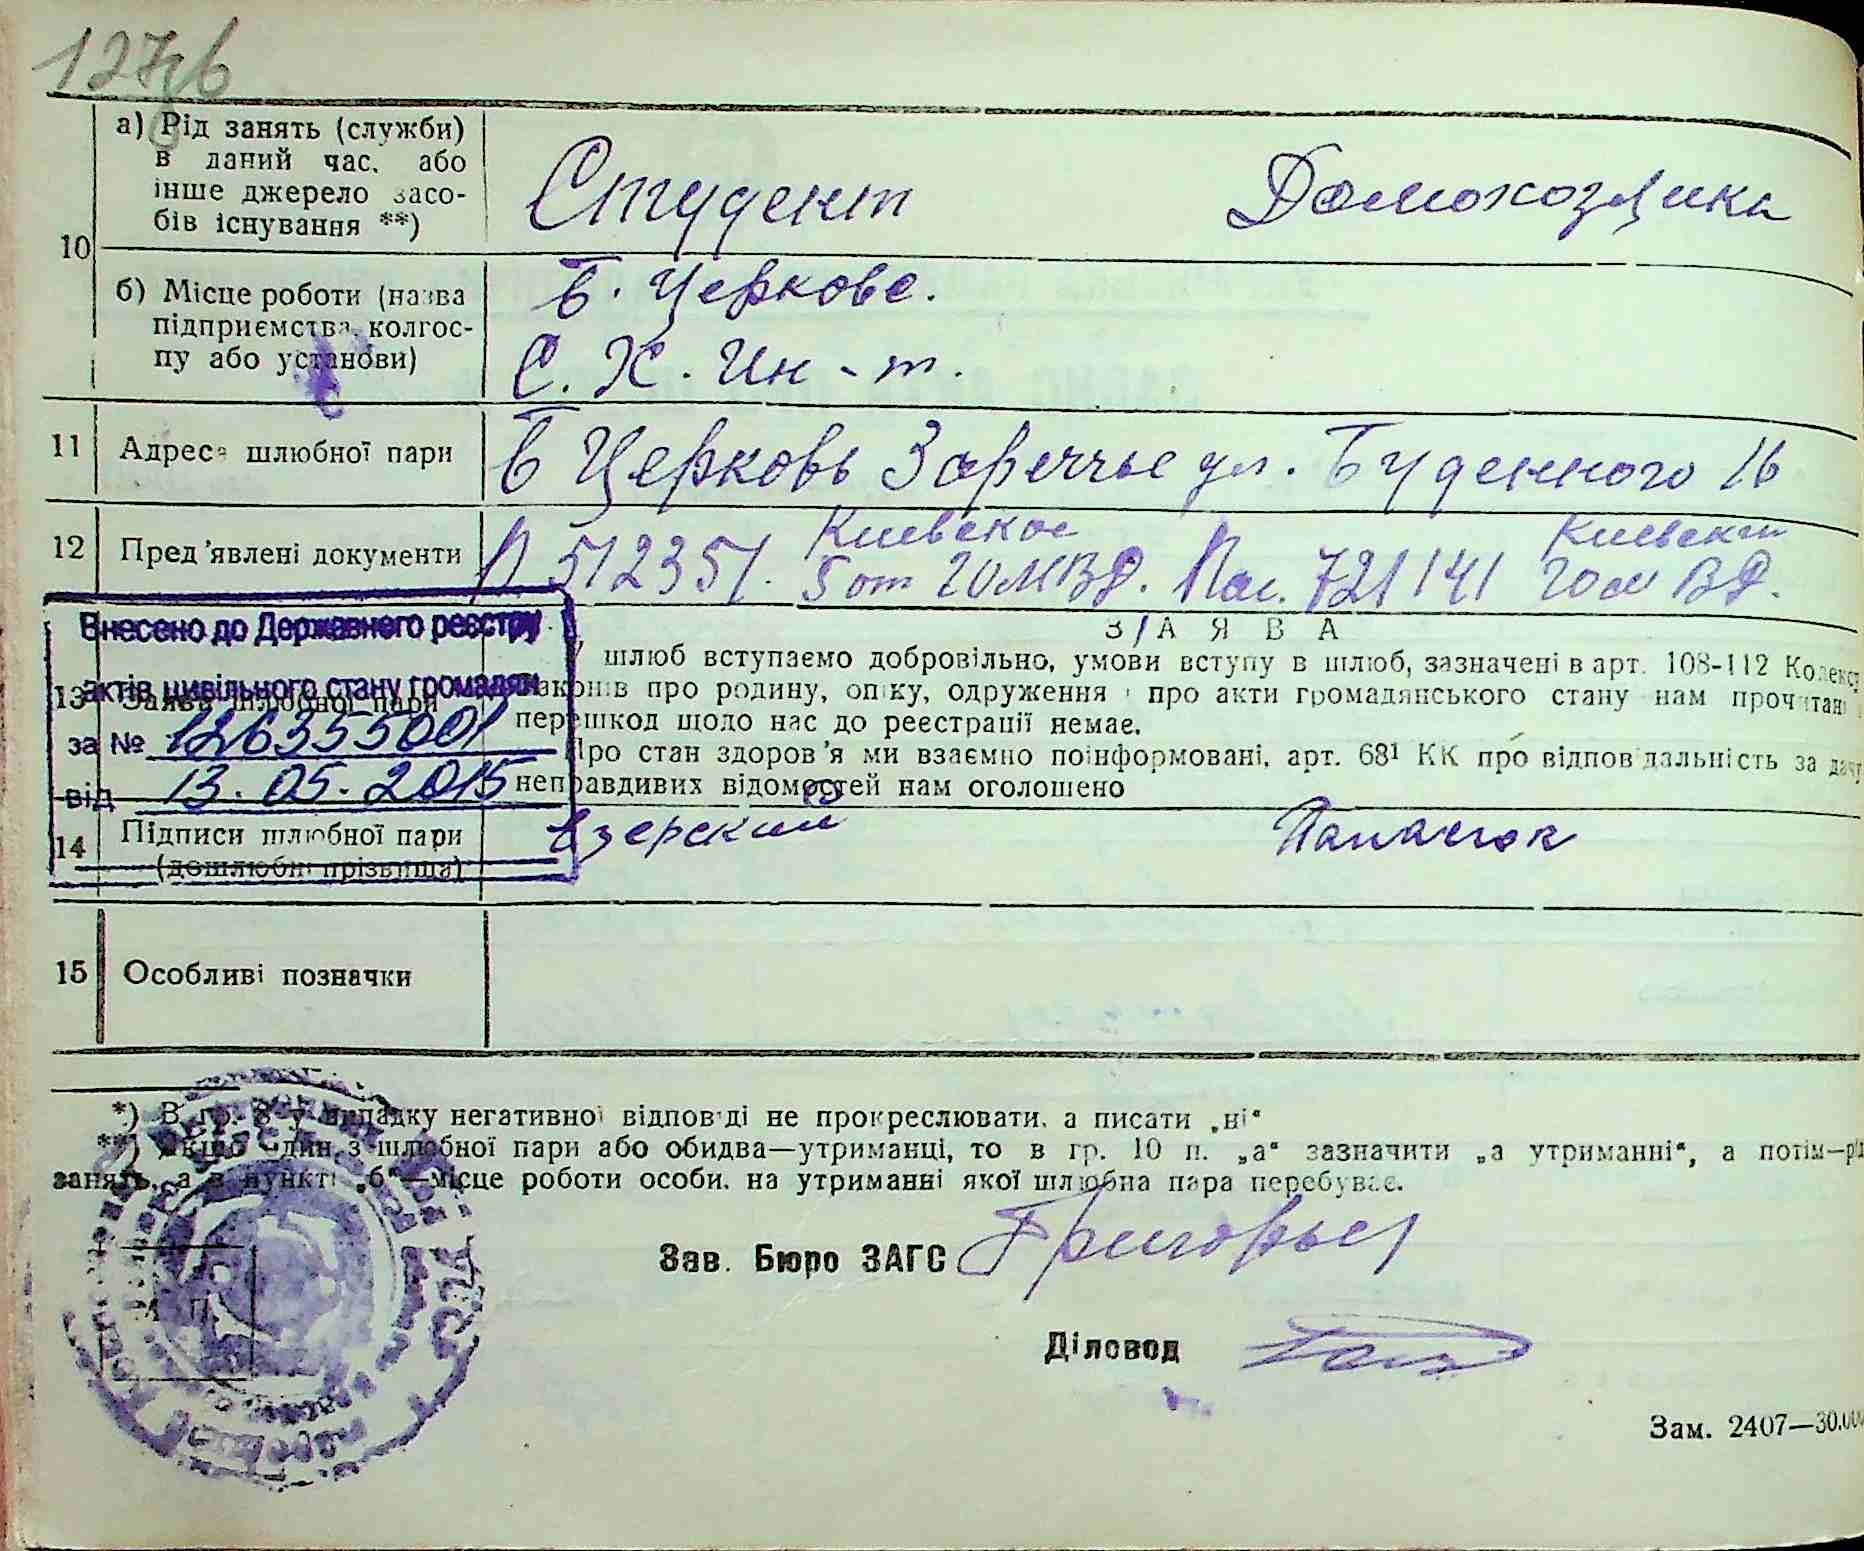 127б
10
а) Рід занять (служби)
в даний час, або
інше джерело засо-
бів існування **)
Студент Домохозяйка
б) Місце роботи (назва
підприємства, колгос-
пу або установи)
Б. Церковс.
С. Х. Ин-т.
11 Адреса шлюбної пари
Б Церковь Заречье ул. Буденного 16
12 Пред'явлені документи
П. 512351. Киевское 5 от ГОМВД. Пас. 721141 Киевским ГОМВД.
Внесено до Державного реєстру
актів цивільного стану громадян
за № 126355001
від 13.05.2015
ЗАЯВА
13 Заява шлюбної пари
шлюб вступаємо добровільно, умови вступу в шлюб, зазначені в арт. 108-112 Кодексу
законів про родину, опіку, одруження і про акти громадянського стану нам прочитані
перешкод щодо нас до реєстрації немає.
Про стан здоров'я ми взаємно поінформовані, арт. 68¹ КК про відповідальність за дачу
неправдивих відомостей нам оголошено
14 Підписи шлюбної пари
(дошлюбні прізвища)
Панасюк
15 Особливі позначки
*) В гр. 8 у випадку негативної відповіді не прокреслювати, а писати „ні“
**) Якщо один з шлюбної пари або обидва—утриманці, то в гр. 10 п. „а“ зазначити „а утриманні“, а потім—рід
занять, а в пункті „б“—місце роботи особи, на утриманні якої шлюбна пара перебуває.
Зав. Бюро ЗАГС Григорьев
М. П.
Діловод
Зам. 2407—30.000